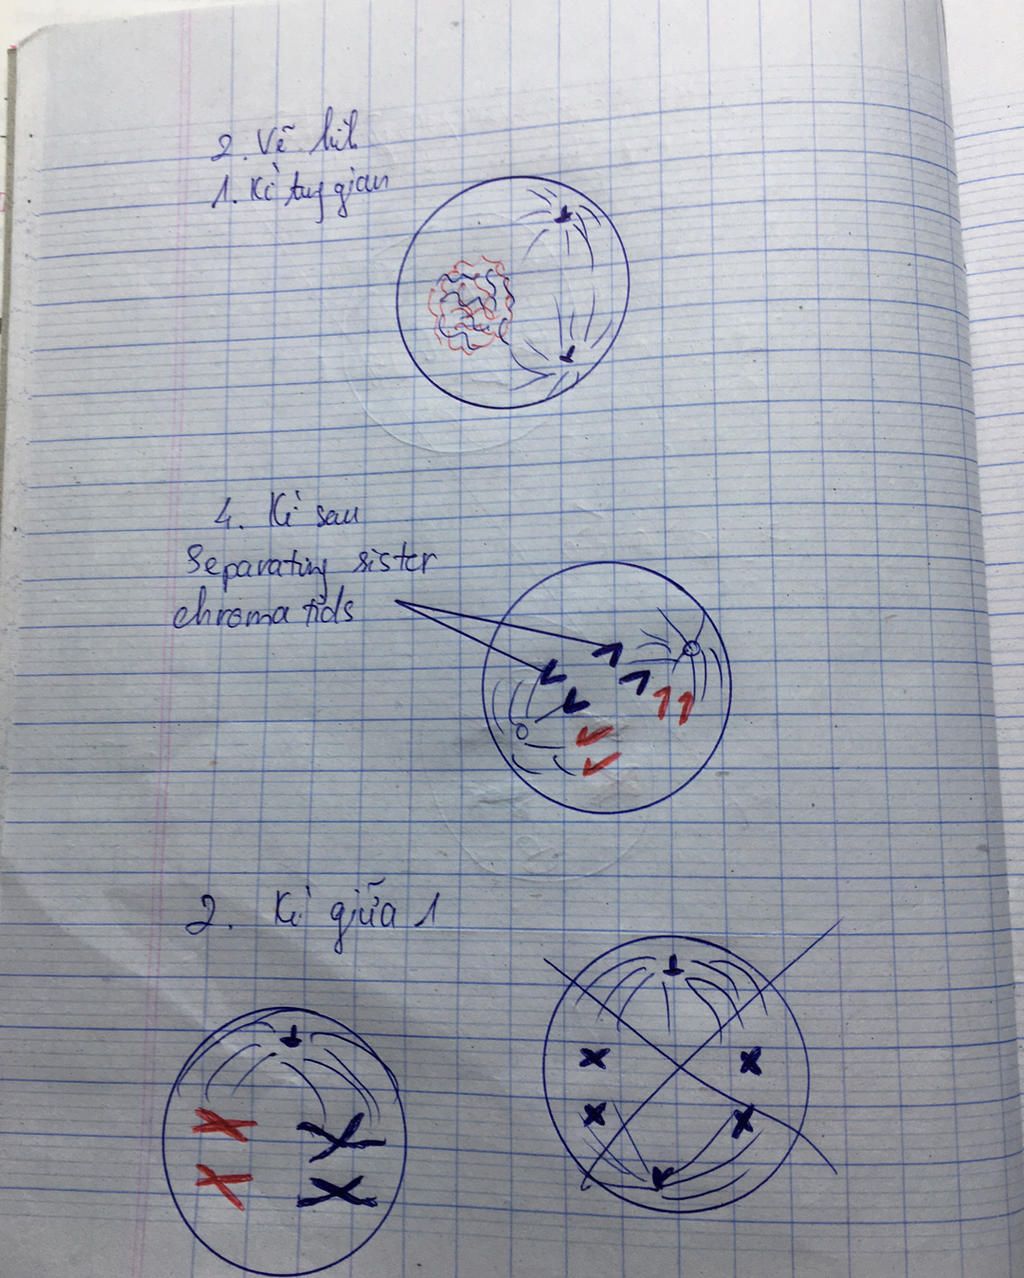 2. Vẽ hình
1. Kì trung gian
4. Kì sau
Separating sister
chromatids
2. Kì giữa 1